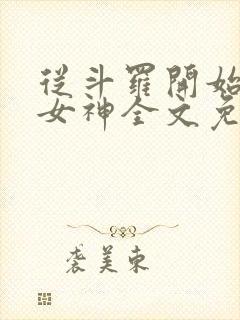 從斗羅開始
女神全文免
袭美束